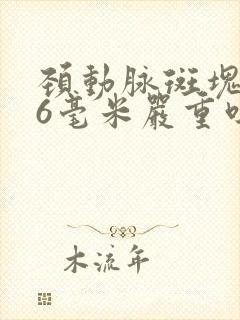 頚動脉斑塊
6毫米嚴重
木流年